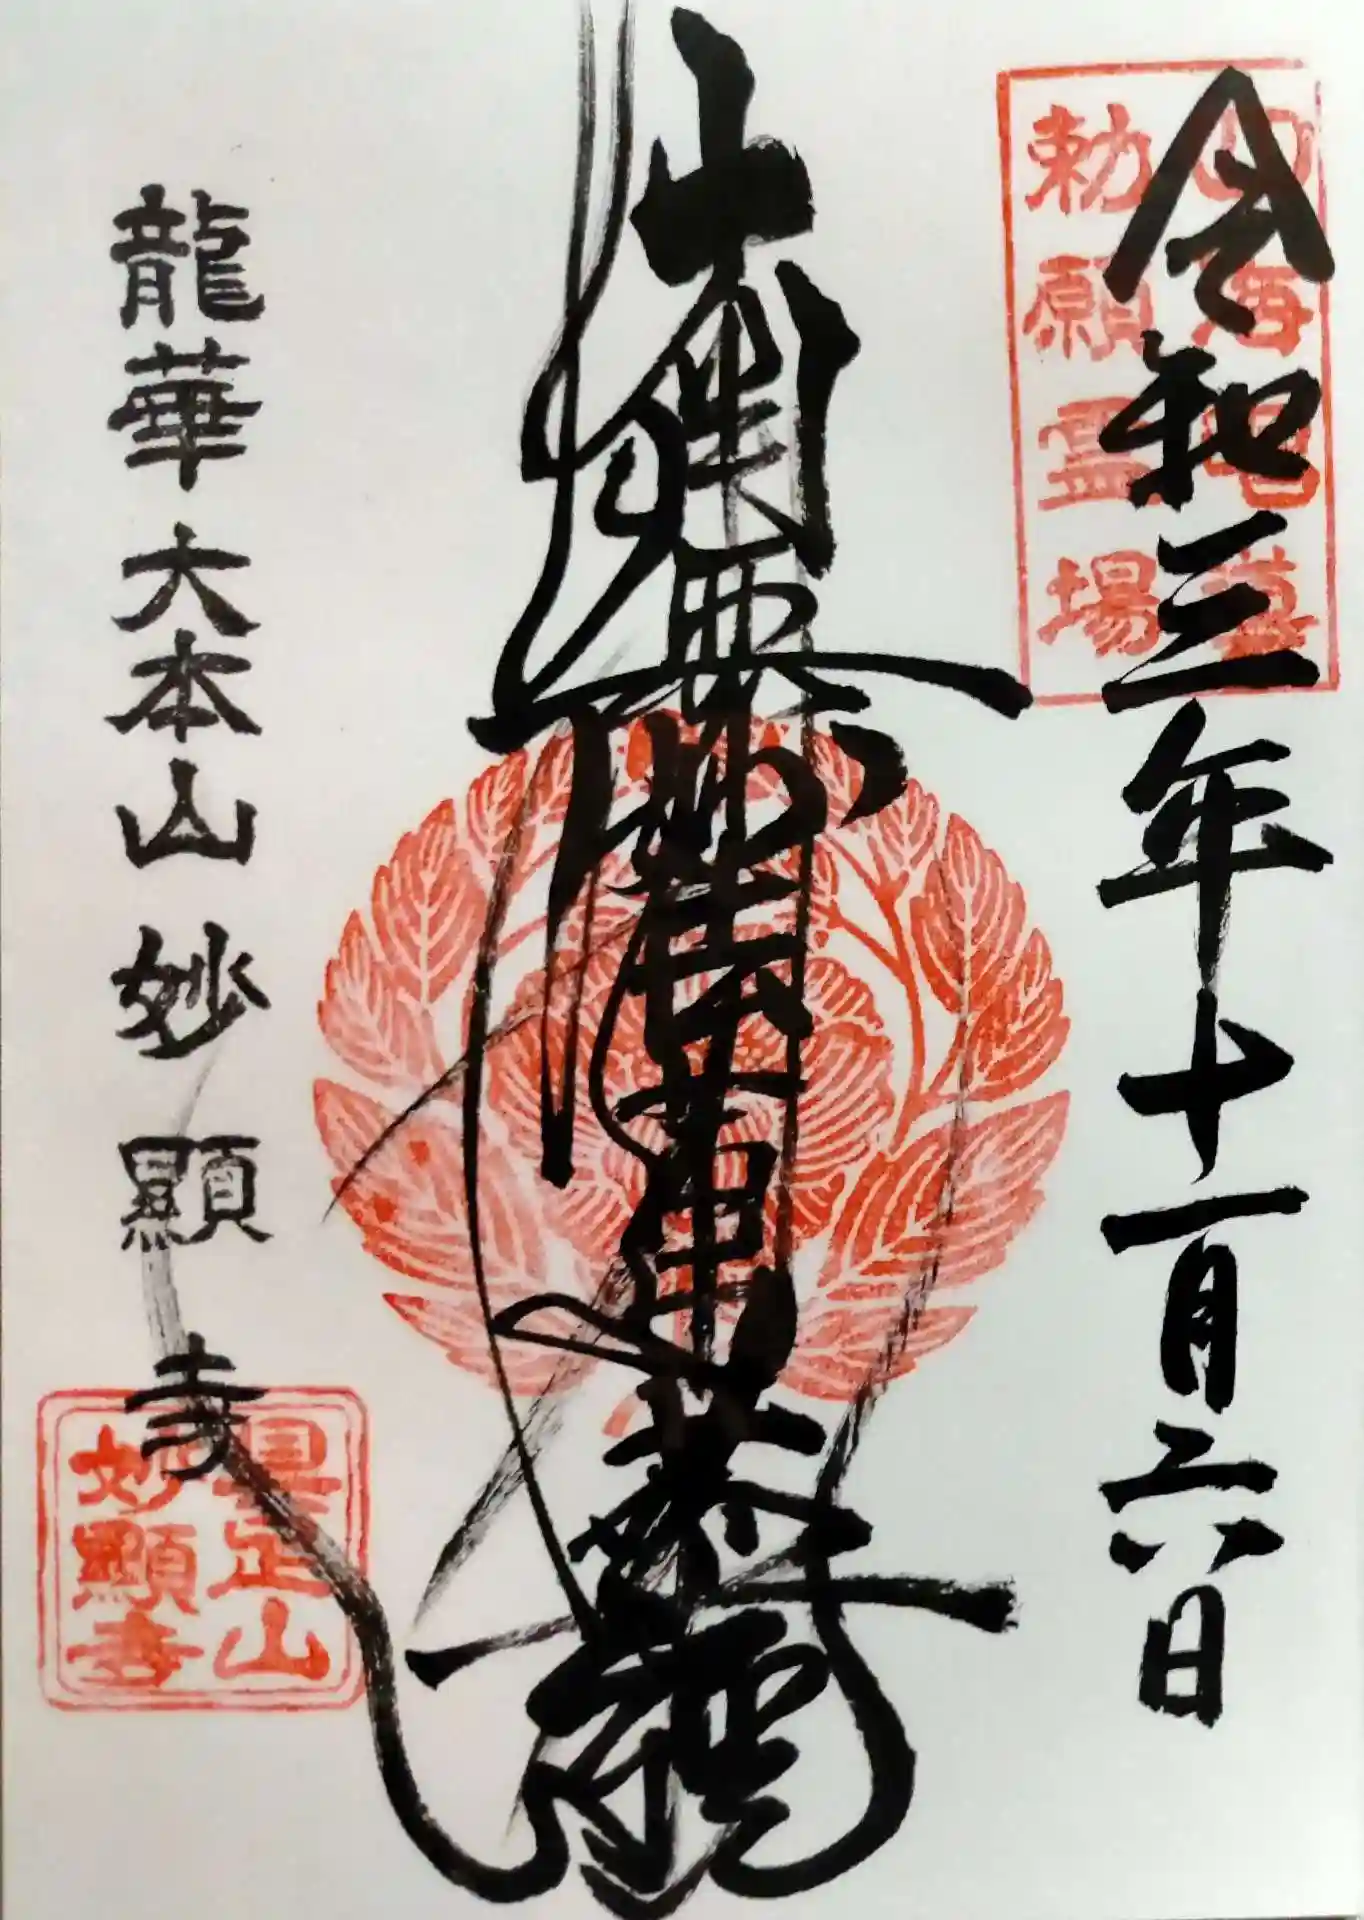 令和三年十一月二六日
勅願霊場
南無妙法蓮華經
龍華大本山妙顯寺
具足山
妙顯寺